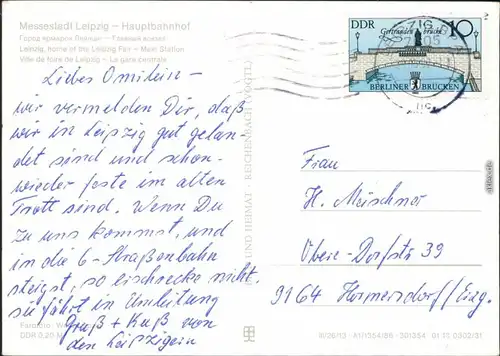 Messestadt Leipzig – Hauptbahnhof
Город ярмарок Лейпциг – Главный вокзал
Leipzig, home of the Leipzig Fair – Main Station
Ville de foire de Leipzig – La gare centrale
Liebes Omilein –
wir vermelden Dir, daß
wir in Leipzig gut gelan-
det sind und schon
wieder feste im alten
Trott sind. Wenn Du
zu uns kommst, und
in die 6-Straßenbahn
steigst, so erschrecke nicht,
sie fährt in Umleitung
Gruß + Kuß von
den Leipzigern
DDR 0,20 M
BILD UND HEIMAT · REICHENBACH
DDR
10
Gertraudenbrücke
BERLINER BRÜCKEN
LEIPZIG
7005
Frau
H. Meischner
Obere-Dorfstr 39
9164 Hormersdorf/Erzg.
III/26/13 A1/1354/86 301354 01 11 0302/31